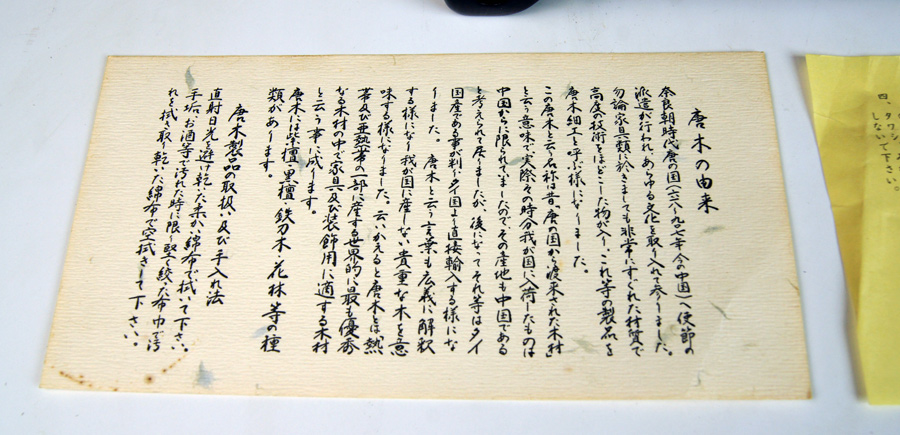 唐木の由来
奈良朝時代唐の国(六一八〜九〇七年今の中国)へ使節の
派遣が行われ、あらゆる文化を取り入れて参りました。
勿論家具類に於きましても非常にすぐれた材質で
高度の技術をほどこした物が入り、これ等の製品を
唐木細工と呼ぶ様になりました。
この唐木と云う名称は昔、唐の国から渡来された木材
と云う意味で実際その時分我が国に入荷したものは
中国からに限られていましたので、その産地も中国である
と考えられて居りましたが、後になってそれ等はタイ
国産である事が判りタイ国より直接輸入する様にな
りました。 唐木と云う言葉も広義に解釈
する様になり我が国に産しない貴重な木を意
味する様になりました。云いかえると唐木とは、熱
帯及び亜熱帯の一部に産する世界的に最も優秀
なる木材の中で家具及び装飾用に適する木材
と云う事に成ります。
唐木には紫檀・黒檀・鉄刀木・花林等の種
類があります。
唐木製品の取扱い及び手入れ法
直射日光を避け乾いた柔か綿布で拭いて下さい。
手垢、お酒等で汚れた時に限り堅く絞った布巾で汚
れを拭き取り乾いた綿布で空拭きして下さい。
四、タワシ
しないで下さい。